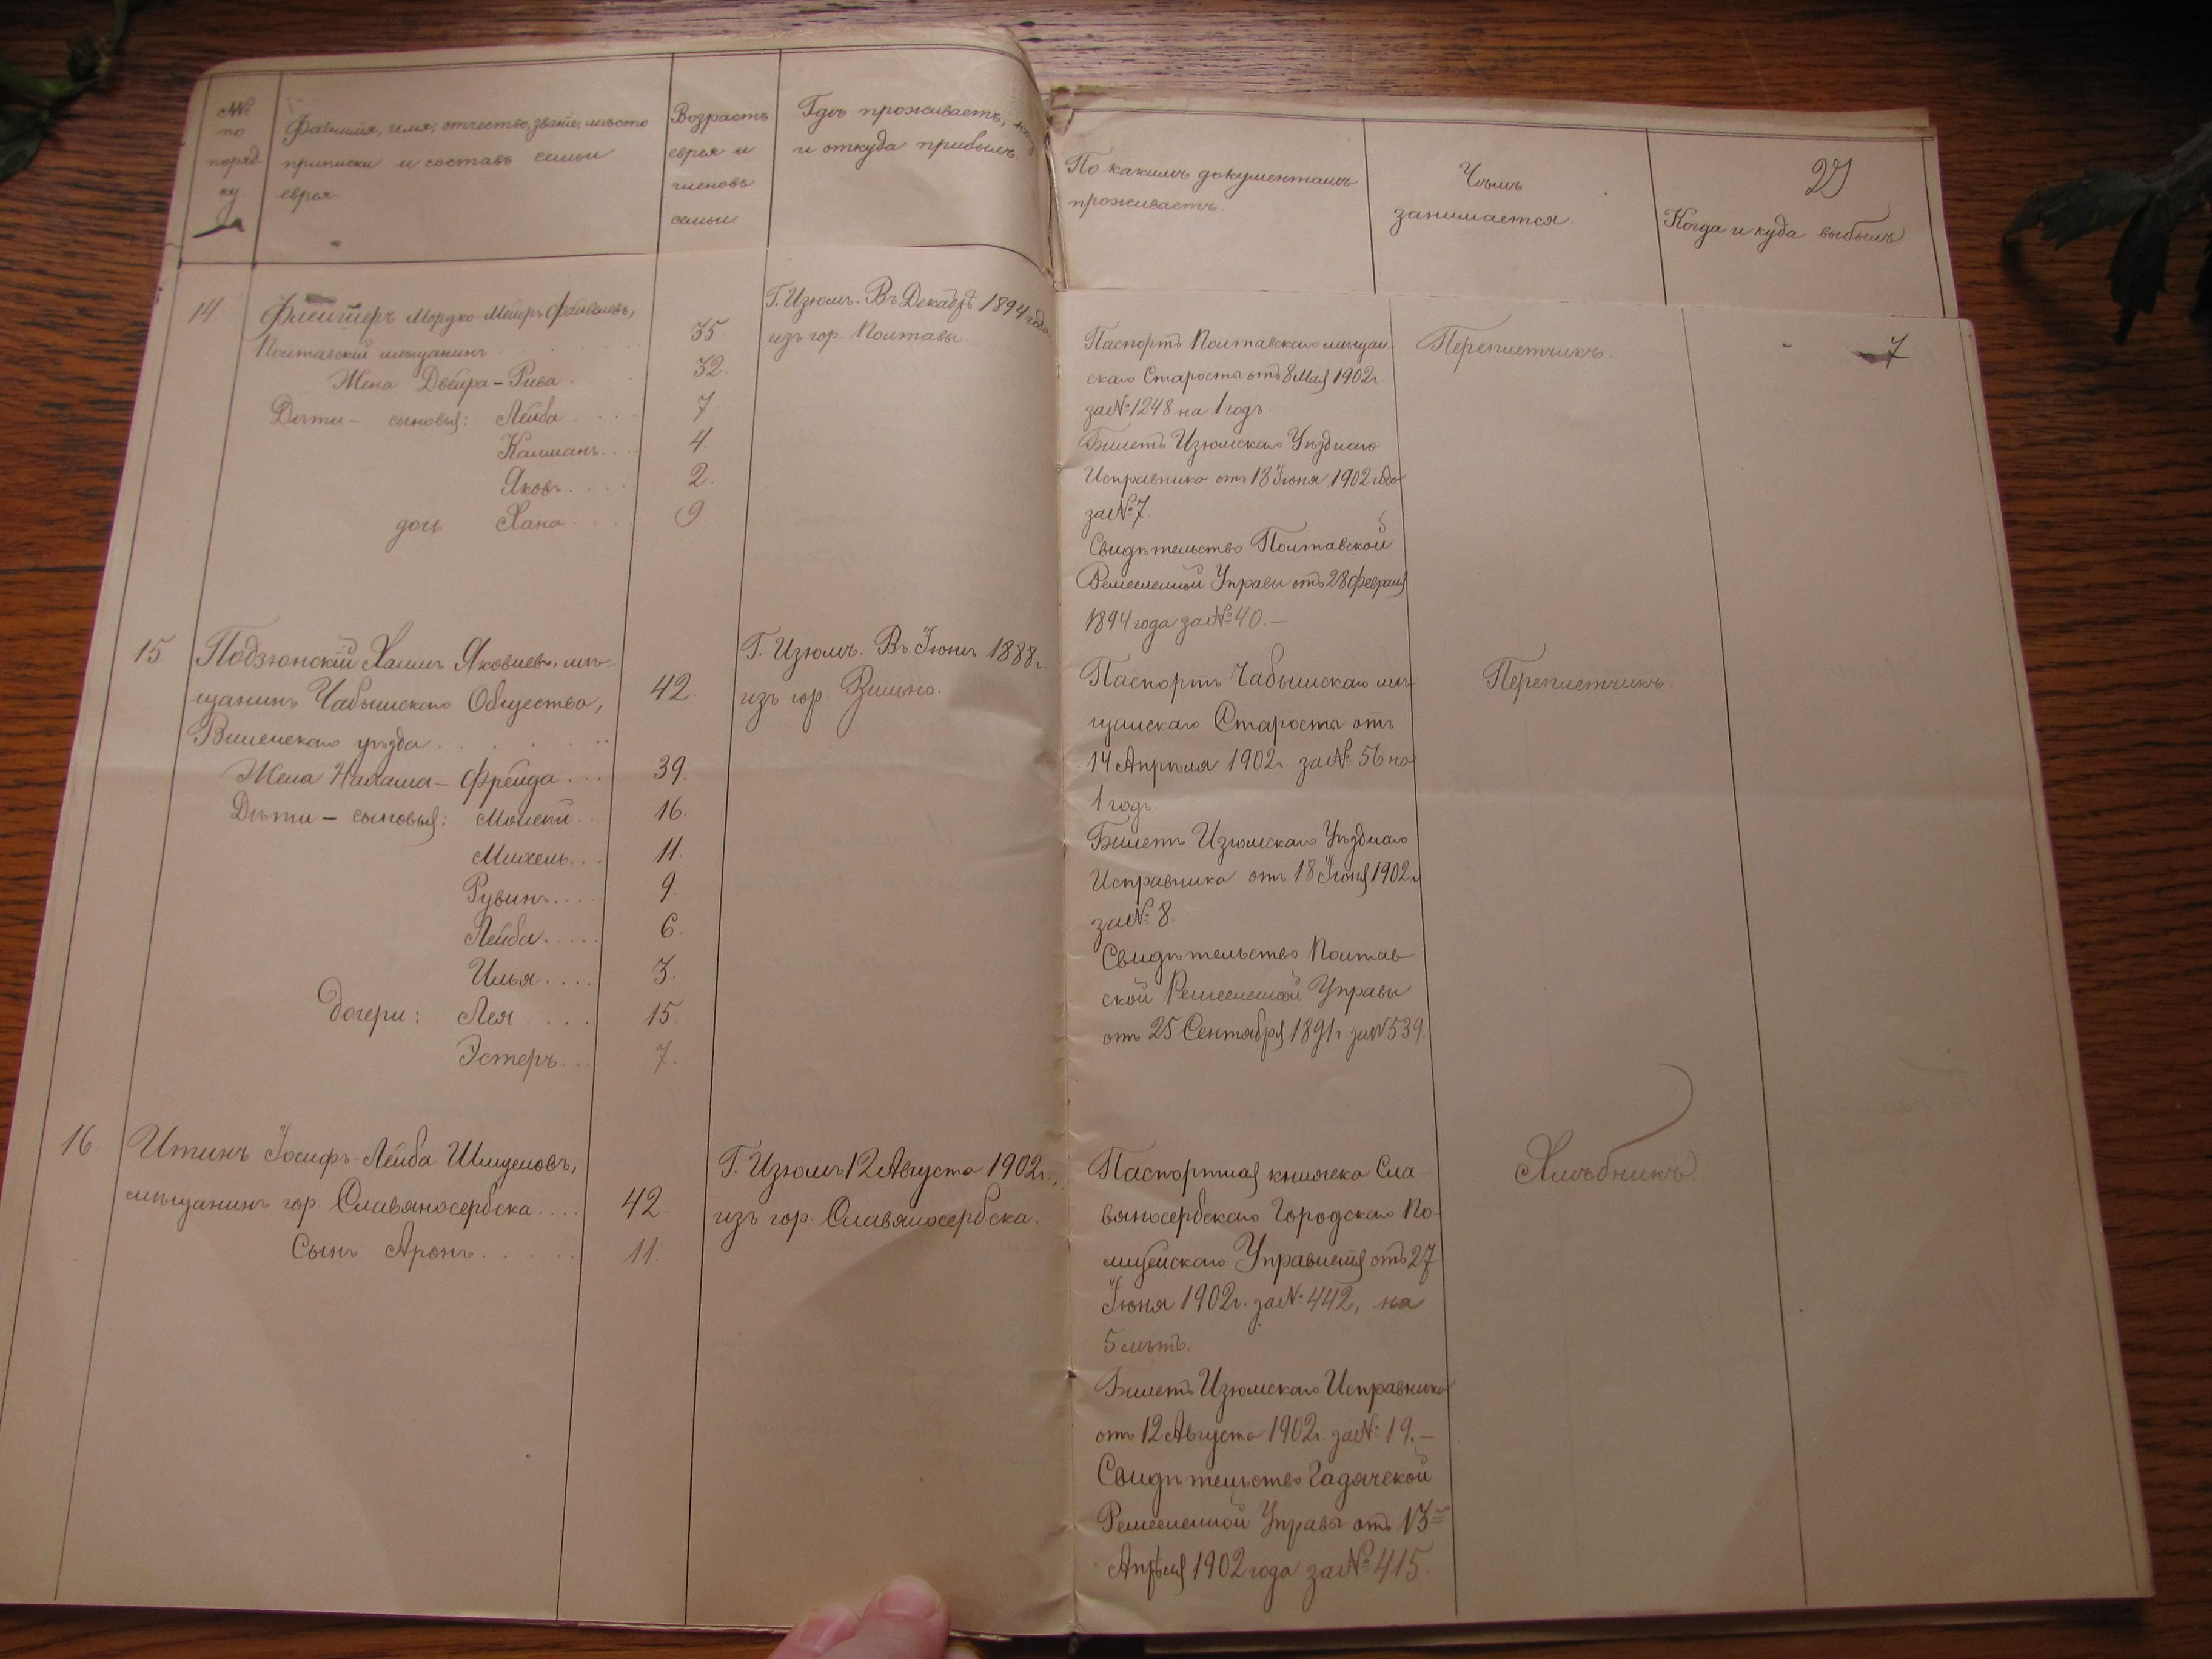 №№
по
поряд
ку
Фамилія, имя, отчество, званіе, мѣсто
приписки и составъ семьи
еврея.
Возрастъ
еврея и
членовъ
семьи.
Гдѣ проживаетъ,
и откуда прибылъ.
По какимъ документамъ
проживаетъ.
Чѣмъ
занимается.
Когда и куда выбылъ
14
Мордко-Мейръ Файвелевъ,
Полтавскій мѣщанинъ 35
Жена Двейра-Рива 32.
Дѣти - сыновья: Лейба 7.
Калманъ 4.
Яковъ 2.
дочь Хана 9.
Г. Изюмъ. Въ Декабрѣ 1894 года
изъ гор. Полтавы.
Паспортъ Полтавскаго мѣщан-
скаго Старосты отъ 8 Мая 1902г.
за № 1248 на 1 годъ.
Билетъ Изюмскаго Уѣзднаго
Исправника отъ 18 Іюня 1902 года
за № 7.
Свидѣтельство Полтавской
Ремесленной Управы отъ 28 Февраля
1894 года за № 40.—
Переплетчикъ.
7
15. Подзюнскій Хаимъ Яковлевъ, мѣ-
щанинъ Чабышскаго Общества, 42.
Виленскаго уѣзда
Жена Нахама-Фрейда 39.
Дѣти - сыновья: Мойсей 16.
Михель 11.
Рувинъ 9.
Лейба 6.
Илья 3.
дочери: Лея 15.
Эстеръ 7.
Г. Изюмъ. Въ Іюнѣ 1888г.
изъ гор. Вильно.
Паспортъ Чабышскаго мѣ-
щанскаго Старосты отъ
14 Апрѣля 1902г. за № 56 на
1 годъ.
Билетъ Изюмскаго Уѣзднаго
Исправника отъ 18 Іюня 1902 г
за № 8.
Свидѣтельство Полтав-
ской Ремесленной Управы
отъ 25 Сентября 1891г. за № 539.
Переплетчикъ.
16 Итинъ Іосифъ-Лейба
мѣщанинъ гор. Славяносербска 42.
Сынъ Аронъ 11.
Г. Изюмъ 12 Августа 1902г.,
изъ гор. Славяносербска.
Паспортная книжка Сла-
вяносербскаго Городскаго По-
лицейскаго Управленія отъ 27
Іюня 1902г. за № 442, на
5 лѣтъ.
Билетъ Изюмскаго Исправника
отъ 12 Августа 1902г. за № 19.—
Свидѣтельство Гадячской
Ремесленной Управы отъ 13го
Апрѣля 1902 года за № 415.
Хлѣбникъ.